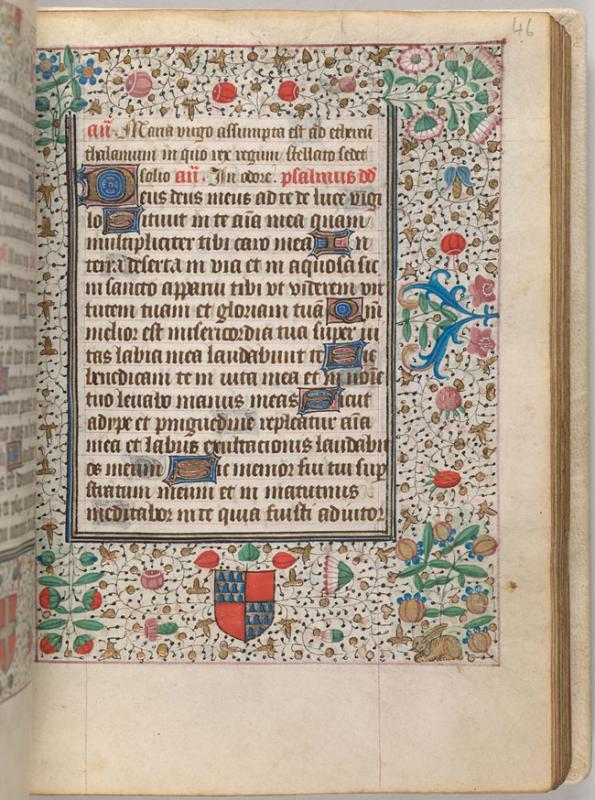 46
añ. Maria virgo assumpta est ad ethereũ
thalamum in quo rex regum stellato sedet
solio añ. In odore. psalmus dd
Deus deus meus ad te de luce vigi
lo Sitiuit in te aĩa mea quam
multipliciter tibi caro mea In
terra deserta in via et in aquosa sic
in sancto apparui tibi vt viderem vir
tutem tuam et gloriam tuã Qm̃
melior est misericordia tua super ui
tas labia mea laudabunt te Sic
benedicam te in uita mea et in noĩe
tuo leuabo manus meas Sicut
adype et pinguedine repleatur aĩa
mea et labiis exultacionis laudabit
os meum Sic memor fui tui sup
stratum meum et in matutinis
meditabor in te quia fuisti adiutor